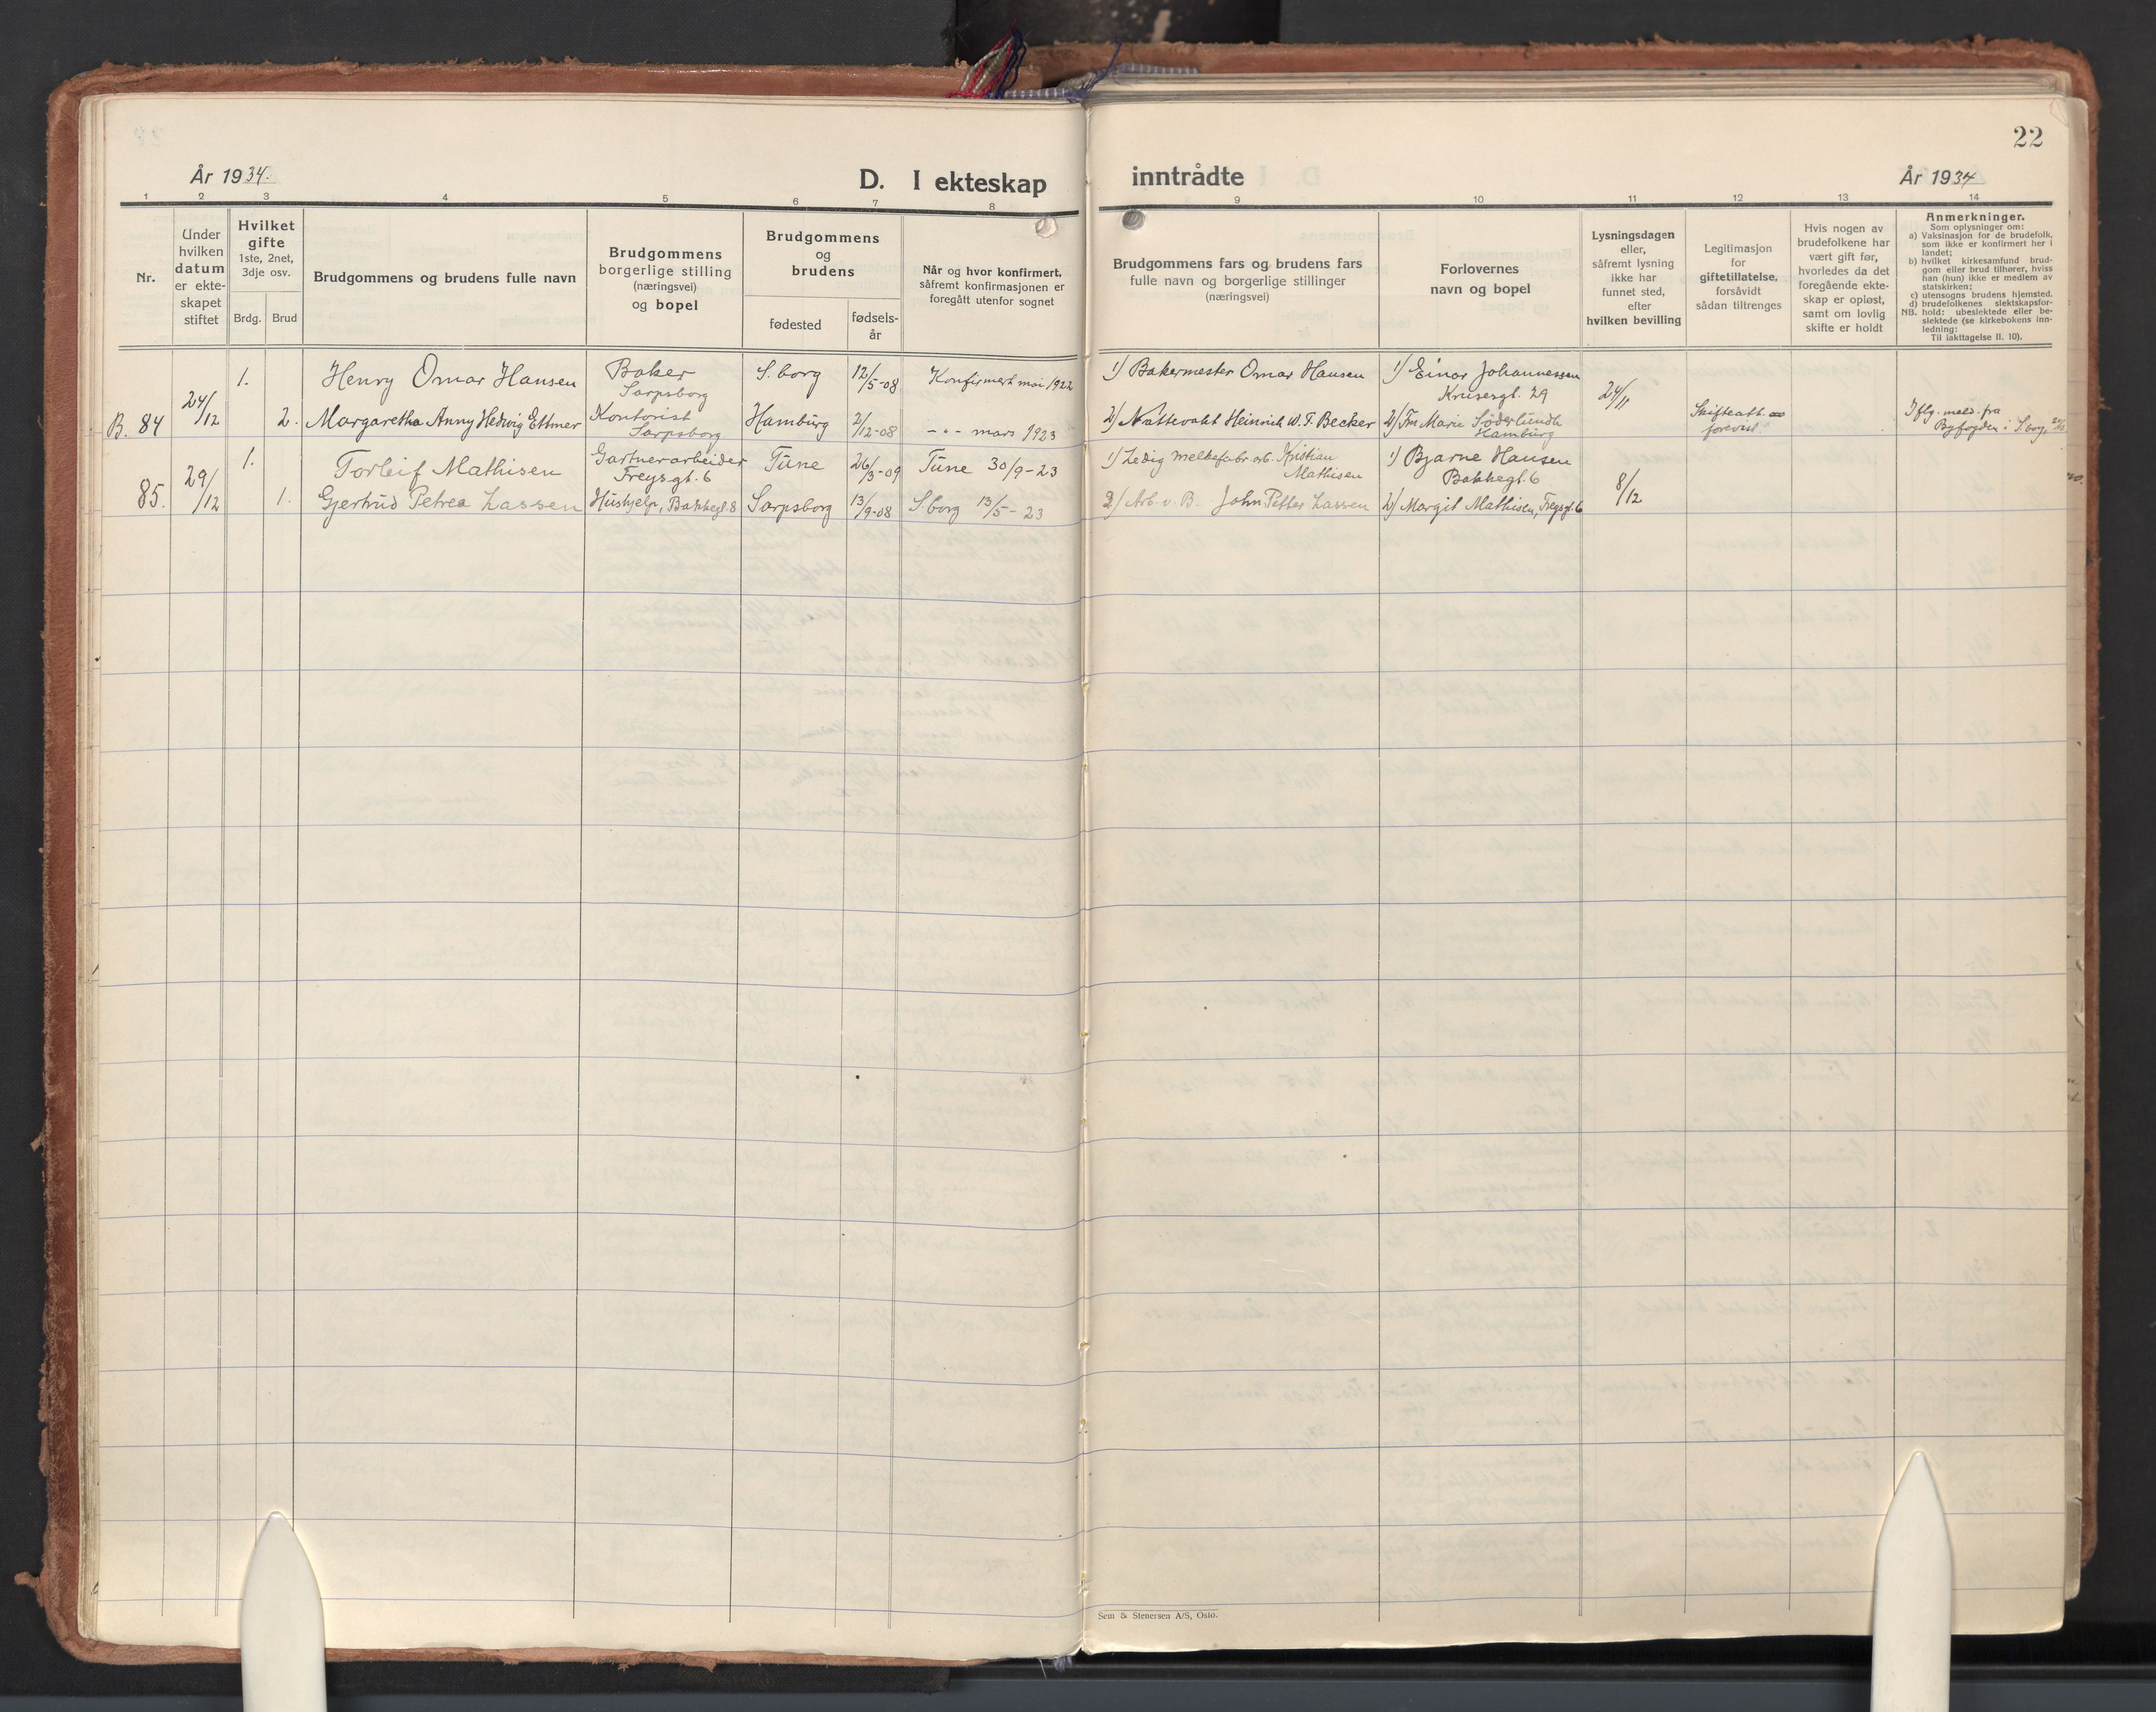 22
År 1934.
D. I ekteskap
inntrådte
År 1934
1 2 3 4 5 6 7 8 9 10 11 12 13 14
Nr.
Under
hvilken
datum
er ekte-
skapet
stiftet
Hvilket
gifte
1ste, 2net,
3dje osv.
Brdg. Brud
Brudgommens og brudens fulle navn
Brudgommens
borgerlige stilling
(næringsvei)
og bopel
Brudgommens
og
brudens
fødested
fødsels-
år
Når og hvor konfirmert,
såfremt konfirmasjonen er
foregått utenfor sognet
Brudgommens fars og brudens fars
fulle navn og borgerlige stillinger
(næringsvei)
Forlovernes
navn og bopel
Lysningsdagen
eller,
såfremt lysning
ikke har
funnet sted,
efter
hvilken bevilling
Legitimasjon
for
giftetillatelse,
forsåvidt
sådan tiltrenges
Hvis nogen av
brudefolkene har
vært gift før,
hvorledes da det
foregående ekte-
skap er opløst,
samt om lovlig
skifte er holdt
Anmerkninger.
Som oplysninger om:
a) Vaksinasjon for de brudefolk,
som ikke er konfirmert her i
landet;
b) hvilket kirkesamfund brud-
gom eller brud tilhører, hviss
han (hun) ikke er medlem av
statskirken;
c) utensogns brudens hjemsted.
d) brudefolkenes slektskapsfor-
NB. hold: ubeslektede eller be-
slektede (se kirkebokens inn-
ledning:
Til iakttagelse II. 10).
B. 84 24/12 1. Henry Omar Hansen Baker Sarpsborg S.borg 12/5-08 Konfirmert mai 1922 1) Bakermester Omar Hansen 1) Einar Johannessen Krusesgt. 29 24/11
2. Margaretha Anny Hedwig Ettmer Kontorist Sarpsborg Hamburg 2/12-08 -"- mars 1923 2) Nattevakt Heinrich W. F. Becker 2) Fru Marie Söderlundh Hamburg Skifteatt forevist. Iflg. meld. fra Byfogden i S.borg
85. 29/12 1. Torleif Mathisen Gartnerarbeider Freysgt. 6 Tune 26/3-09 Tune 30/9-23 1) Ledig melkefabr.arb. Kristian Mathisen 1) Bjarne Hansen Bakkegt. 6 8/12
1. Gjertrud Petrea Lassen Hushjelp, Bakkegt. 8 Sarpsborg 13/9-08 S.borg 13/5-23 2) Arb. v. B. John Petter Lassen 2) Margit Mathisen, Freysgt. 6
Sem & Stenersen A/S, Oslo.